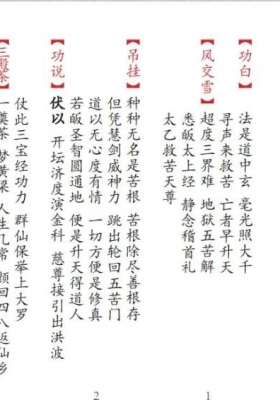 【功白】
法是道中玄 毫光照大千
寻声来救苦 亡者早升天
【风交雪】
超度三界难 地狱五苦解
悉皈太上经 静念稽首礼
太乙救苦天尊
1
【吊挂】
种种无名是苦根 苦根除尽善根存
但凭慧剑威神力 跳出轮回五苦门
道以无心度有情 一切方便是修真
若皈圣智圆通地 便是升天得道人
2
【功说】
伏以 开坛济度演金科 慈尊接引出洪波
仗此三宝经功力 群仙保举上大罗
茶】
一奠茶 梦黄粱 人生几常 颜回四八返仙乡